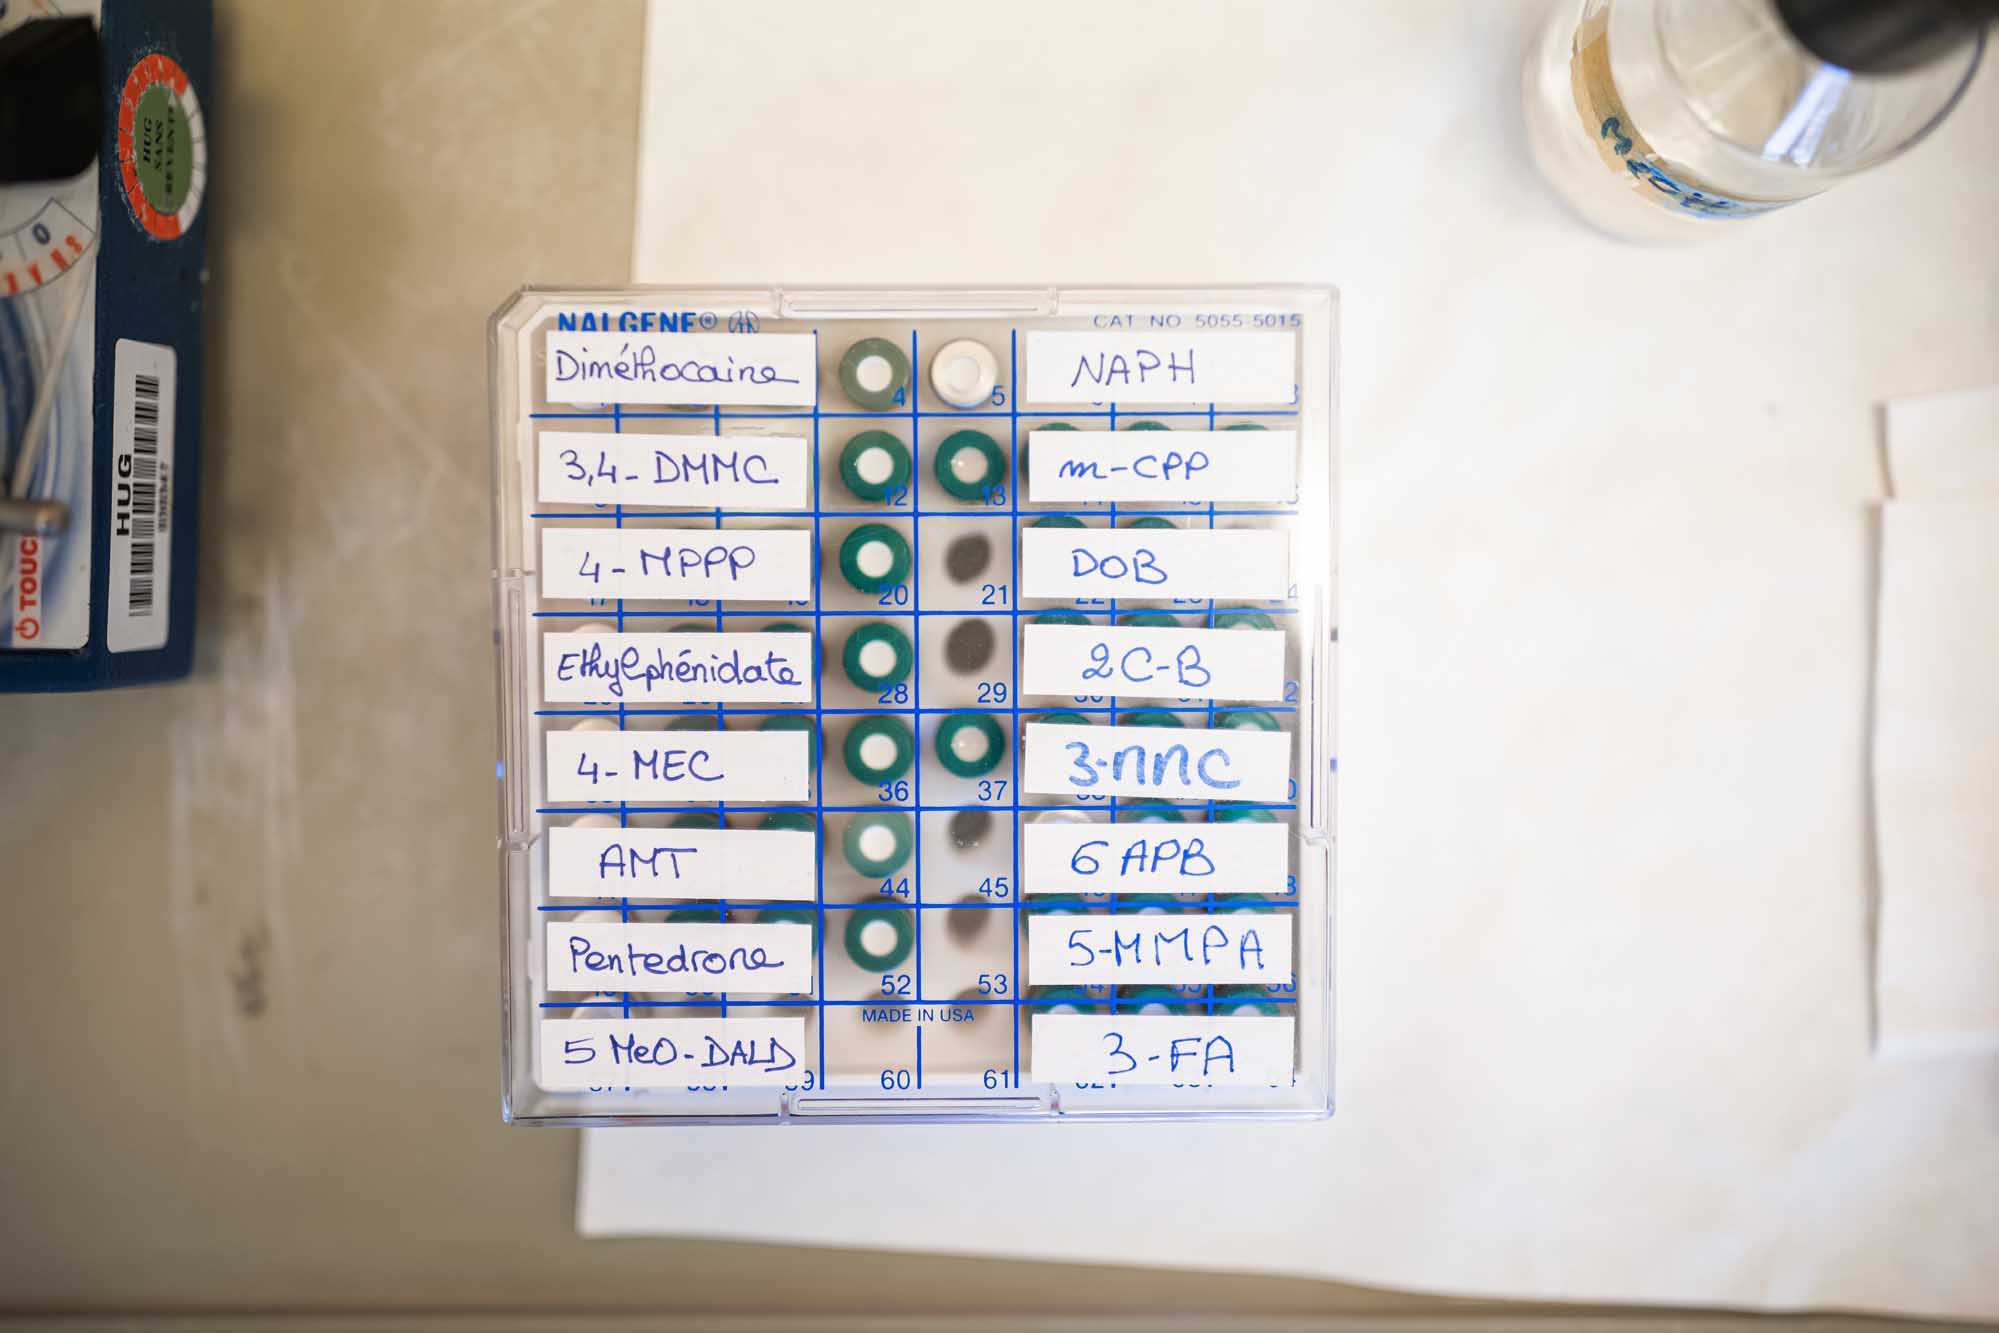 HUG
SANS
REVENTE
0
HUG
TOUC
NALGENE®
CAT NO 5055-5015
Diméthocaine
4
5
NAPH
3,4-DMMC
12
13
m-CPP
4-MPPP
20
21
DOB
Ethylphénidate
28
29
2C-B
4-MEC
36
37
3-MMC
AMT
44
45
6 APB
Pentedrone
52
53
5-MMPA
MADE IN USA
5 MeO-DALD
60
61
3-FA